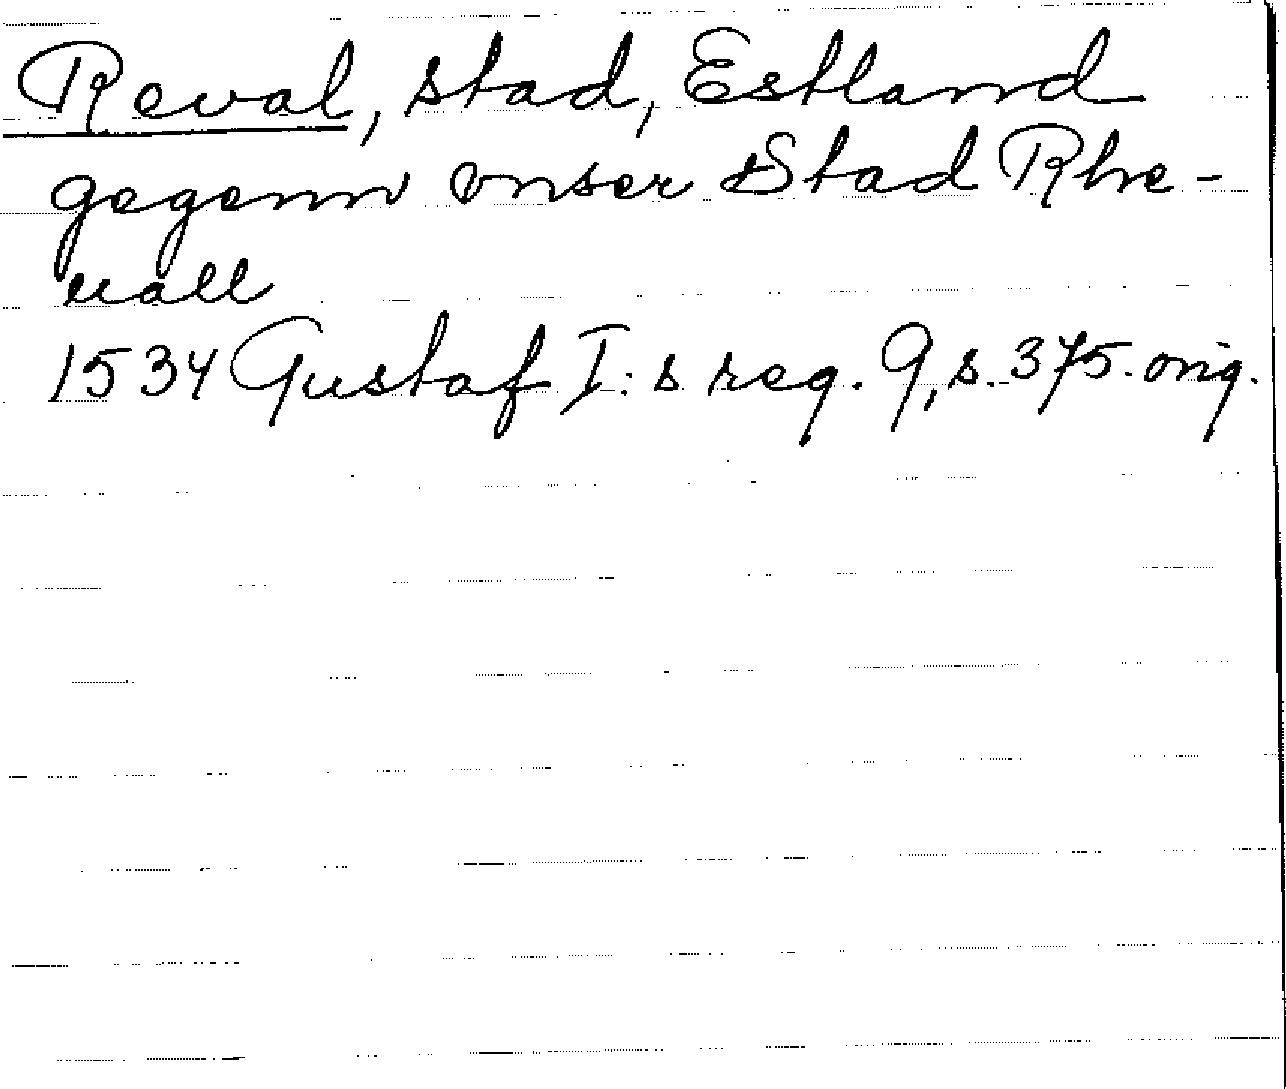 Reval, stad, Estland
gegenn vnser Stad Rhe-
uall
1534 Gustaf I:s reg. 9, s. 375. orig.